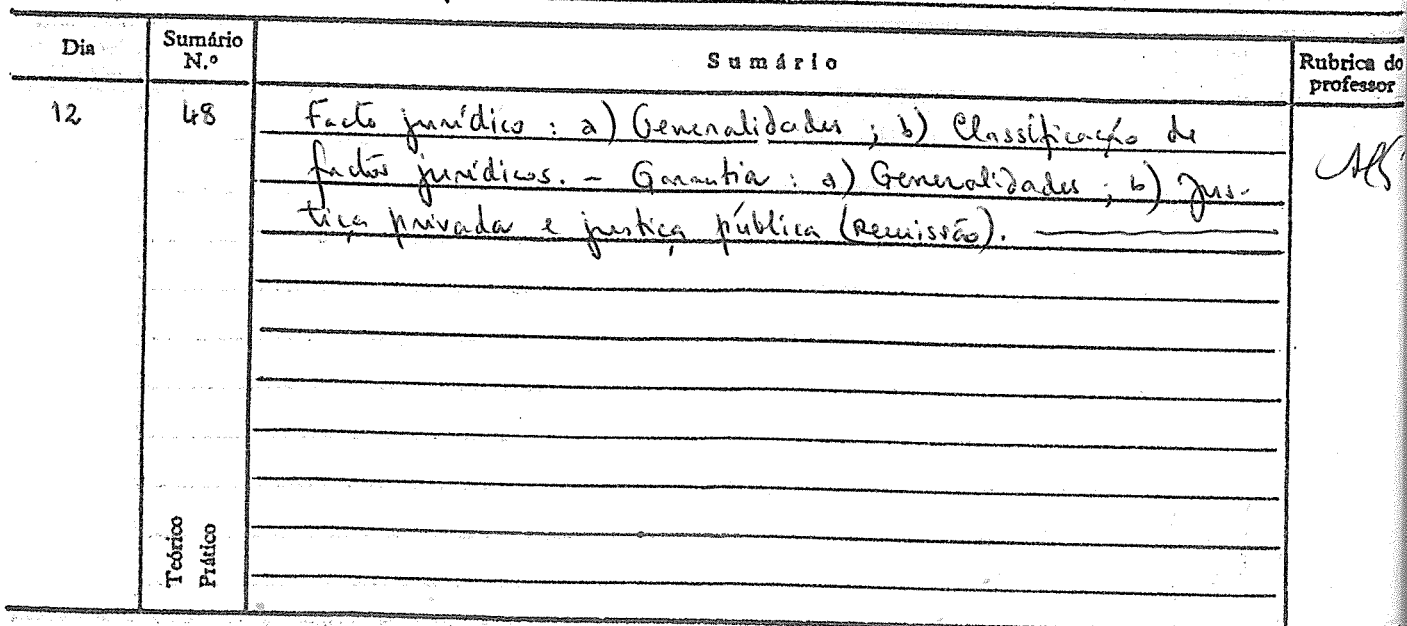 Dia Sumário N.º Sumário Rubrica do professor
12 48 Facto jurídico : a) Generalidades ; b) Classificação de
factos jurídicos. - Garantia : a) Generalidades ; b) Jus-
tiça privada e justiça pública (Remissão).
Teórico
Prático